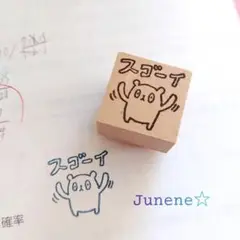 スゴーイ
スゴーイ
Junene☆
確率